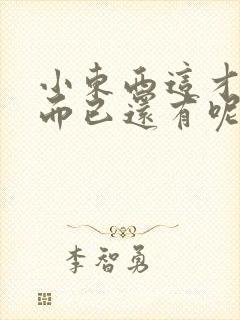 小東西這才
而已還有呢
李智勇